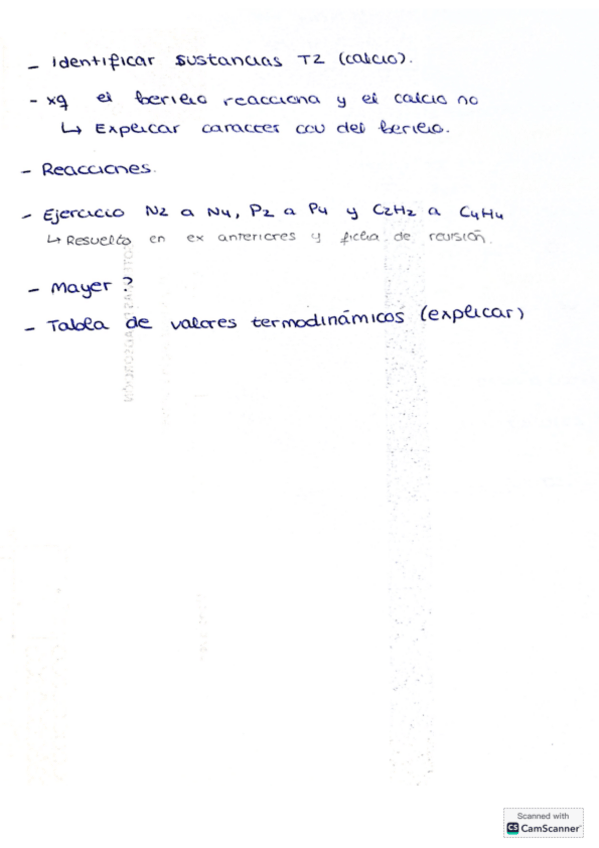 - Identificar sustancias T2 (calcio).
- xq el berilio reacciona y el calcio no
↳ Explicar caracter cov del berilio.
- Reacciones.
- Ejercicio N2 a N4, P2 a P4 y C2H2 a C4H4
↳ Resuelto en ex anteriores y ficha de reusión.
- Mayer?
- Tabla de valores termodinámicos (explicar)
Scanned with
CS CamScanner